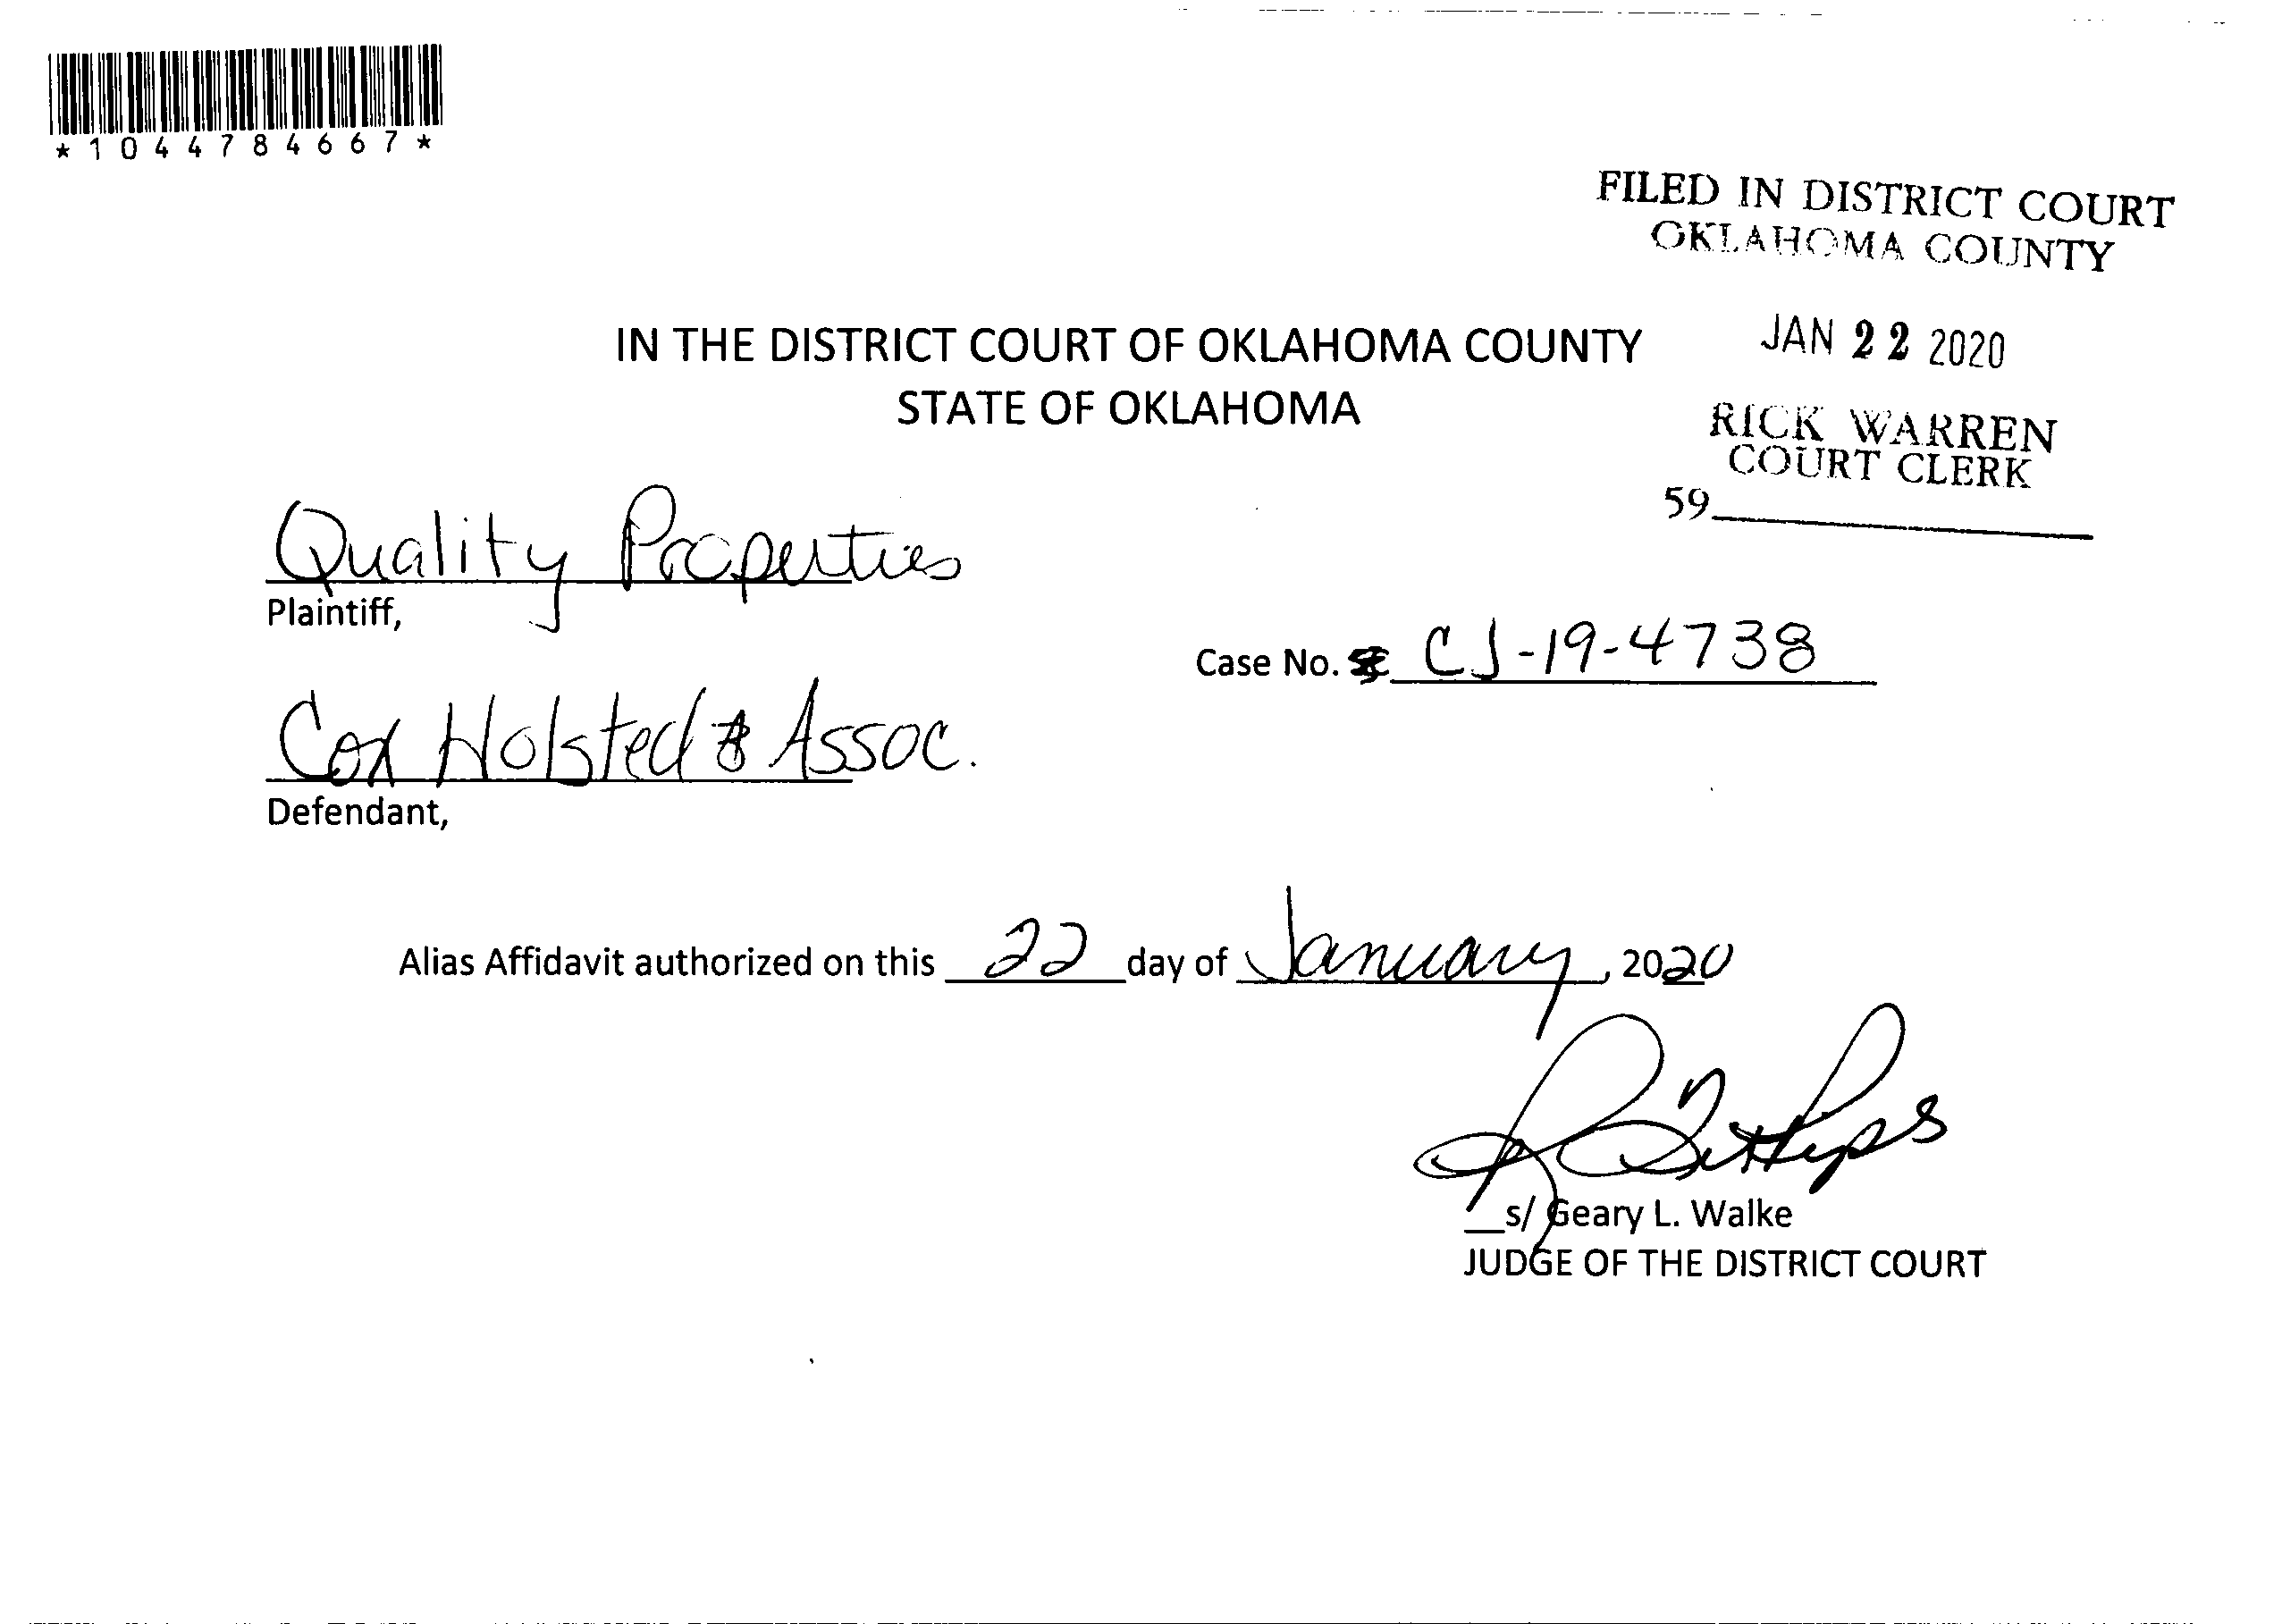 *1044784667*
FILED IN DISTRICT COURT
OKLAHOMA COUNTY
JAN 22 2020
RICK WARREN
COURT CLERK
59
IN THE DISTRICT COURT OF OKLAHOMA COUNTY
STATE OF OKLAHOMA
Quality Properties
Plaintiff,
Case No. CJ-19-4738
Cox Holsted & Assoc.
Defendant,
Alias Affidavit authorized on this 22 day of January, 2020
s/ Geary L. Walke
JUDGE OF THE DISTRICT COURT